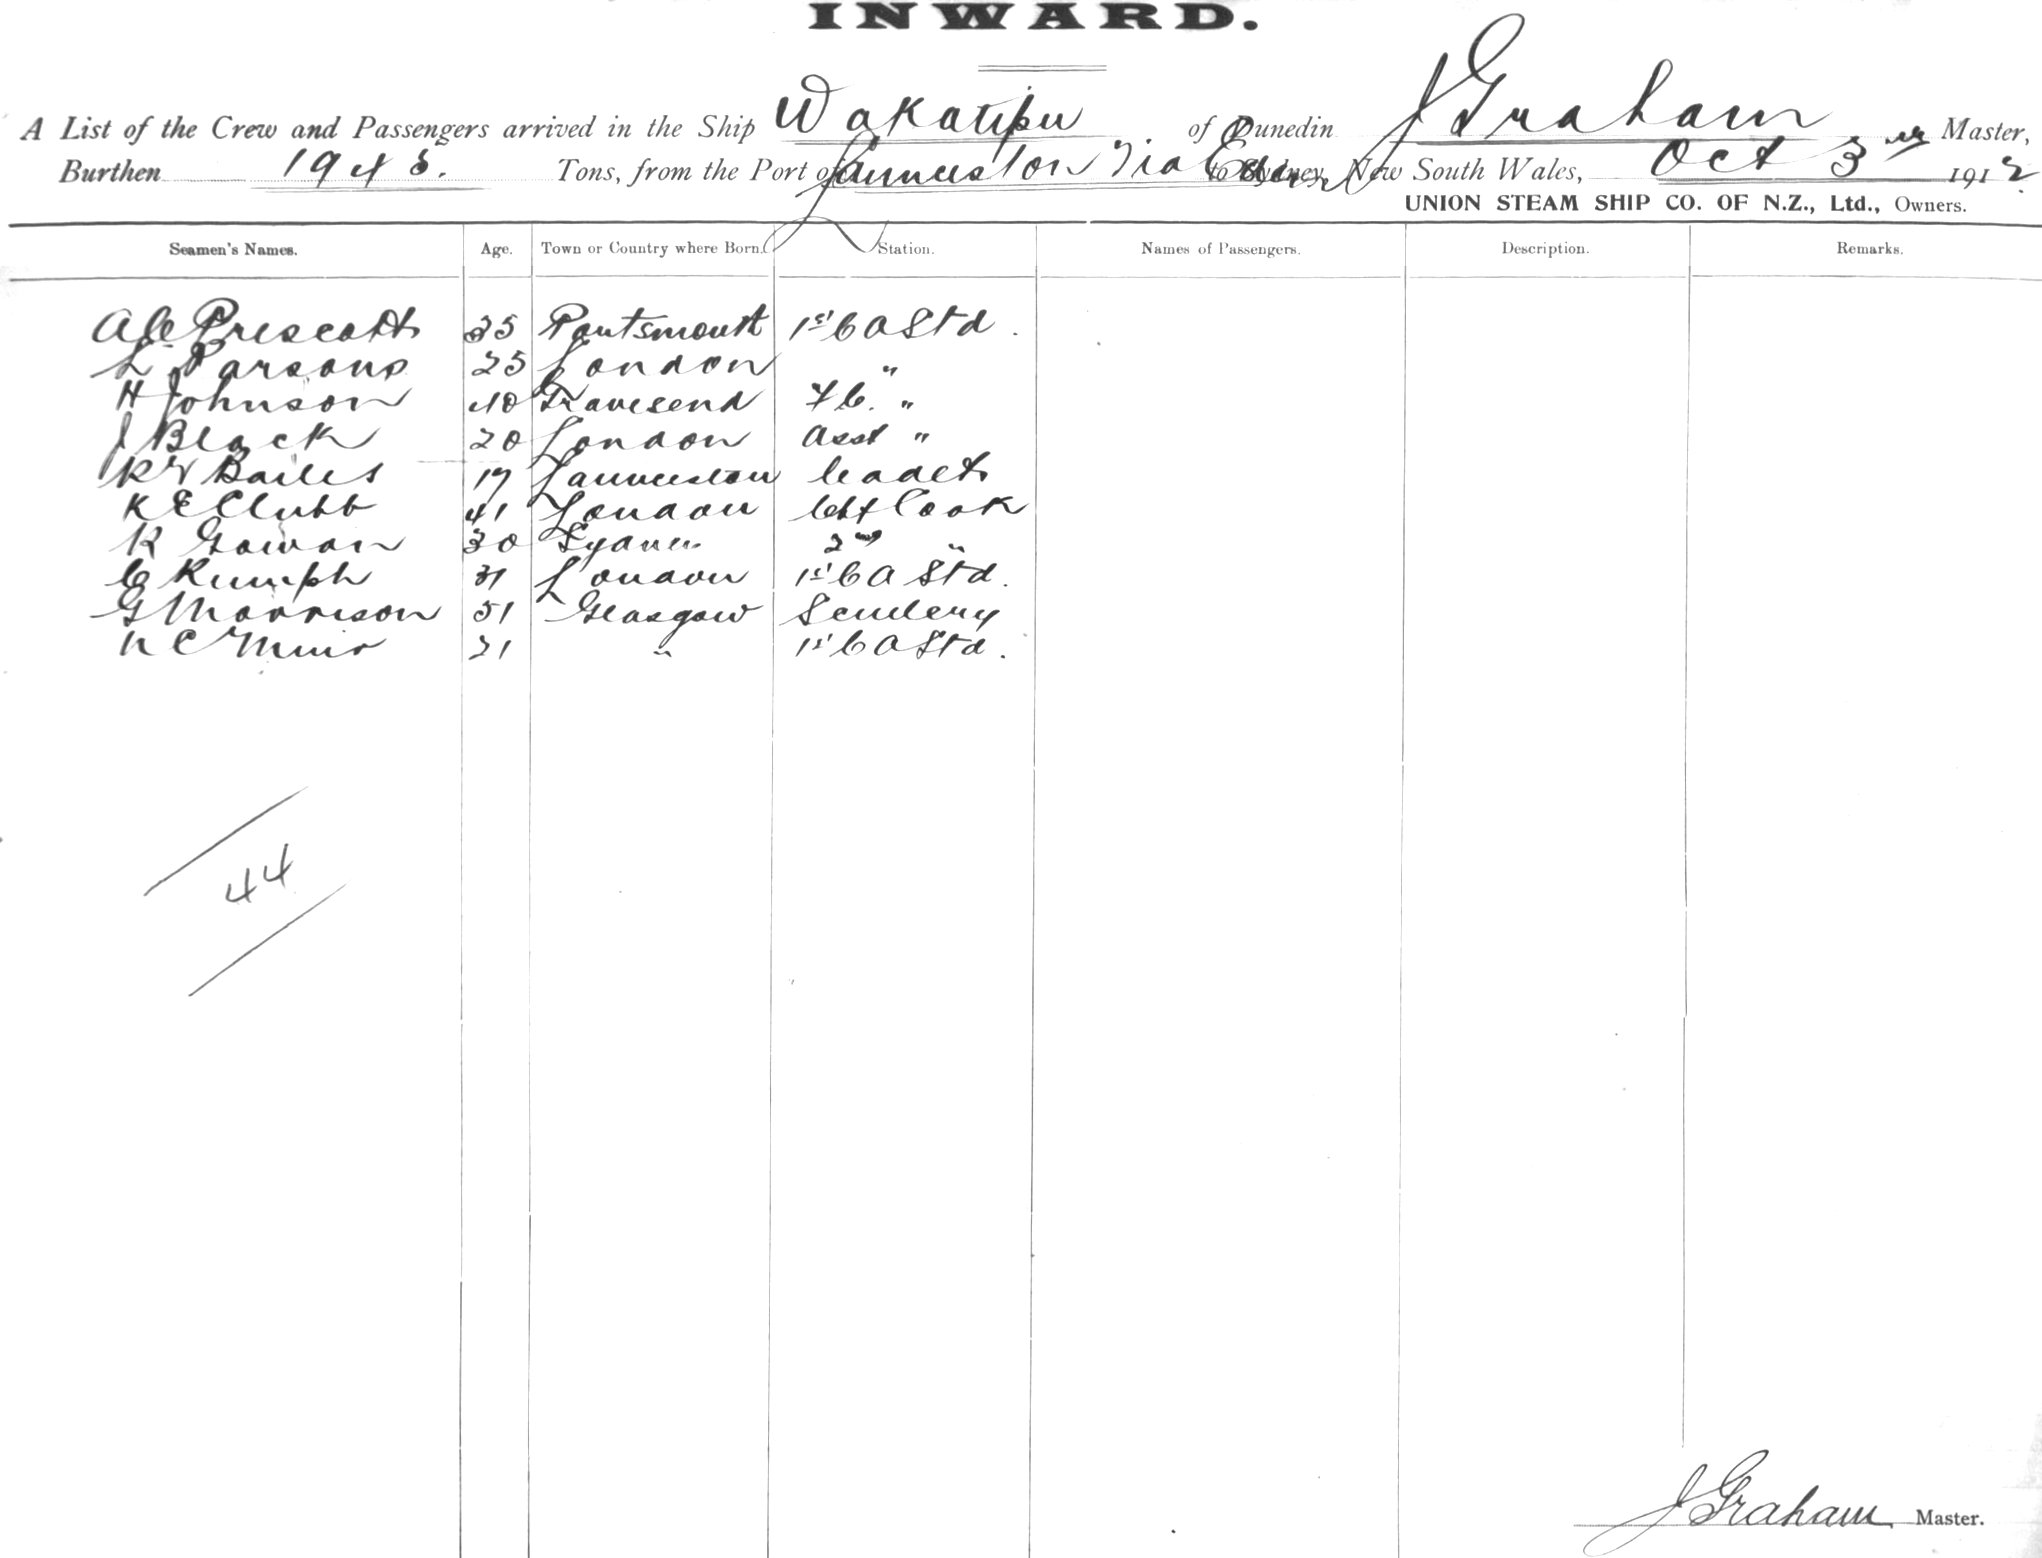 INWARD.
A List of the Crew and Passengers arrived in the Ship Wakatipu of Dunedin J Graham Master,
Burthen 1945. Tons, from the Port of Launceston Via Eden to Sydney, New South Wales, Oct 3rd 1912
UNION STEAM SHIP CO. OF N.Z., Ltd., Owners.
Seamen's Names. Age. Town or Country where Born. Station. Names of Passengers. Description. Remarks.
Prescott 35 Portsmouth 1st C A Std.
L Parsons 25 London "
H Johnson 40 Gravesend F C. "
J Black 20 London Asst "
Bailes 17 Launceston Cadet
R E Clubb 41 London Chf Cook
R Gowan 30 Sydney 2nd "
C Rumph 31 London 1st C A Std.
G Morrison 51 Glasgow
N C Muir 21 " 1st C A Std.
44
J Graham Master.